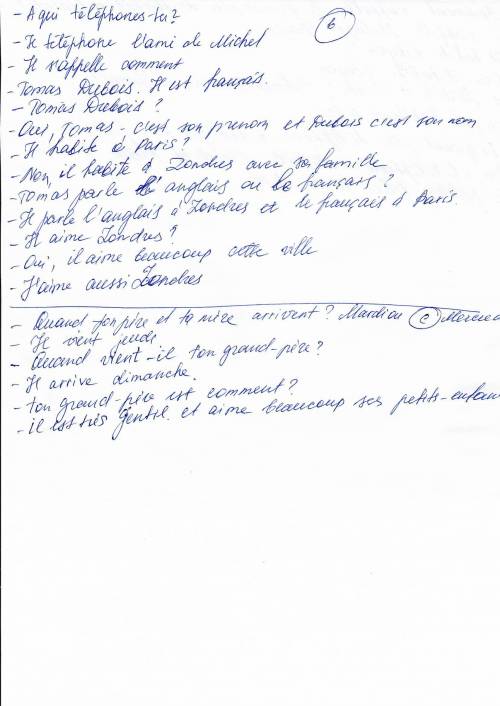 - A qui téléphones-tu?
6
- Je téléphone l'ami de Michel
- Il s'appelle comment
- Tomas Dubois. Il est français.
- Tomas Dubois?
- Oui, Tomas - c'est son prenom et Dubois c'est son nom
- Il habite à Paris?
- Non, il habite à Londres avec sa famille
- Tomas parle l'anglais ou le français?
- Il parle l'anglais à Londres et le français à Paris
- Il aime Londres?
- Oui, il aime beaucoup cette ville
- J'aime aussi Londres
- Quand ton père et ta mère arrivent? Mardi ou c Mercred
- Il vient jeudi
- Quand vient-il ton grand-père?
- Il arrive dimanche.
- ton grand-père est comment?
- il est très gentil. et aime beaucoup ses petits-enfan